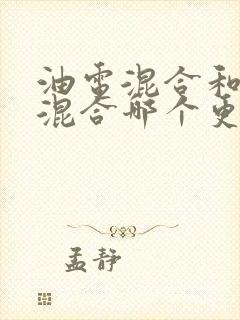 油电混合和
混合哪个更
孟静